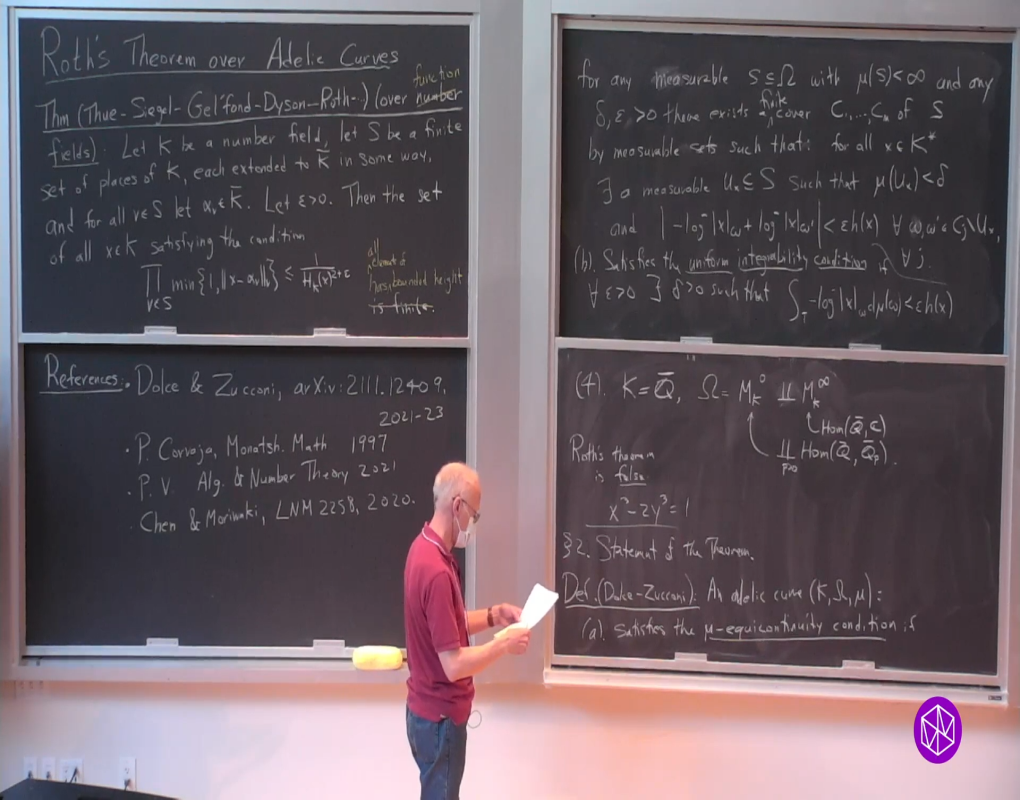 Roth's Theorem over Adelic Curves
function
Thm (Thue-Siegel-Gel'fond-Dyson-Roth-) (over number
fields): Let K be a number field, let S be a finite
set of places of K, each extended to K̄ in some way,
and for all v∈S let αᵥ∈K̄. Let ε>0. Then the set
of all x∈K satisfying the condition
∏_{v∈S} min{1, ||x-αᵥ||ᵥ} ≤ 1/H_K(x)^{2+ε}
has bounded height
is finite.
References: · Dolce & Zucconi, arXiv:2111.12409,
2021-23
· P. Corvaja, Monatsh. Math 1997
· P. V. Alg. & Number Theory 2021
· Chen & Moriwaki, LNM 2258, 2020.
for any measurable S⊆Ω with μ(S)<∞ and any
finite
δ, ε >0 there exists a cover C₁,...,Cₙ of S
by measurable sets such that: for all x∈K*
∃ a measurable Uₓ⊆S such that μ(Uₓ)<δ
and |-log⁻|x|_ω + log⁻|x|_ω'| < εh(x) ∀ ω,ω'∈Cⱼ\Uₓ,
∀ j.
(b). Satisfies the uniform integrability condition if
∀ ε>0 ∃ δ>0 such that ∫_T -log⁻|x|_ω dμ(ω) < εh(x)
(4). K=Q̄, Ω= M_K^0 ⨿ M_K^∞
Hom(Q̄,C)
⨿_{p>0} Hom(Q̄, Q̄_p).
Roth's theorem
is false
x³-2y³=1
§2. Statement of the Theorem.
Def. (Dolce-Zucconi): An adelic curve (K,Ω,μ):
(a). Satisfies the μ-equicontinuity condition if